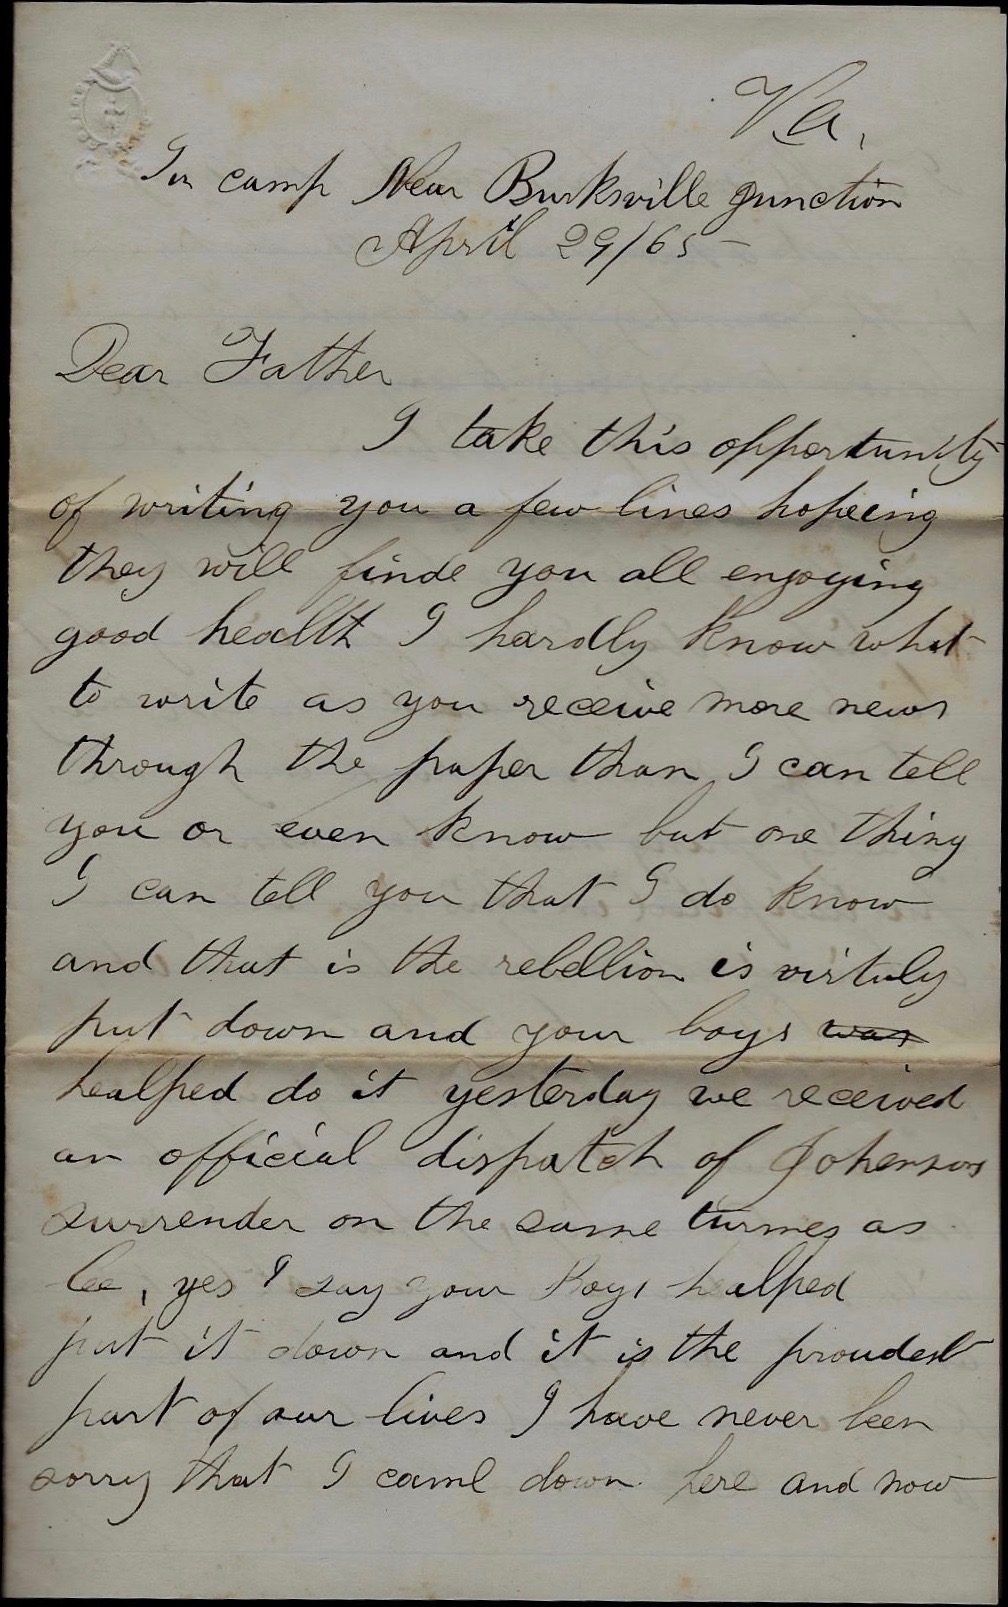 Va,
In camp Near Burksville Junction
April 29/65 -
Dear Father
I take this opportunity
of writing you a few lines hopeing
they will finde you all engoying
good heallth I hardly know what
to write as you receive more news
through the paper than I can tell
you or even know but one thing
I can tell you that I do know
and that is the rebellion is virtuly
put down and your boys was
healped do it yesterday we received
an official dispatch of Johensons
surrender on the same turmes as
lee, yes I say your Boys healped
put it down and it is the proudest
part of our lives I have never been
sorry that I came down here and now